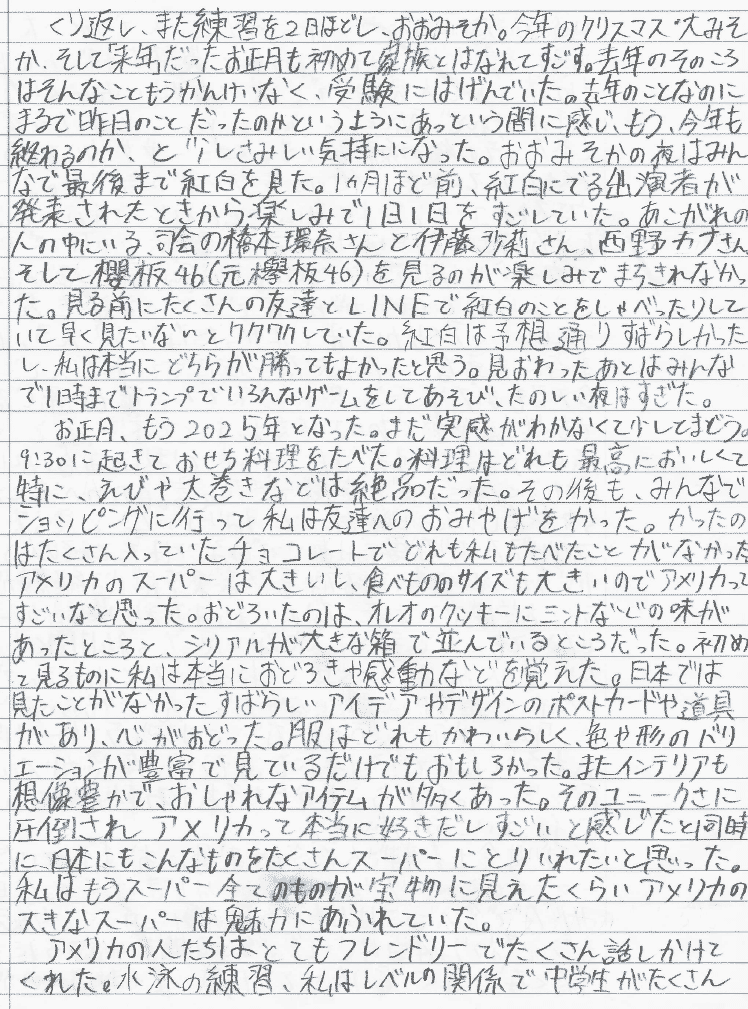 くり返し、また練習を2日ほどし、おおみそか。今年のクリスマス・大みそ
か、そして「来年」だったお正月も初めて家族とはなれてすごす。去年のそのころ
はそんなこともうかんけいなく、受験にはげんでいた。去年のことなのに
まるで昨日のことだったのかというようにあっという間に感じ、もう、今年も
終わるのか、と少しさみしい気持ちになった。おおみそかの夜はみん
なで最後まで紅白を見た。1ヵ月ほど前、紅白にでる出演者が
発表されたときから楽しみで1日1日をすごしていた。あこがれの
人の中にいる、司会の橋本環奈さんと伊藤沙莉さん、西野カナさん、
そして櫻坂46(元欅坂46)を見るのが楽しみでまちきれなかっ
た。見る前にたくさんの友達とLINEで紅白のことをしゃべったりして
いて早く見たいなぃとワクワクしていた。紅白は予想通りすばらしかった
し、私は本当にどちらが勝ってもよかったと思う。見おわったあとはみんな
で1時までトランプでいろんなゲームをしてあそび、たのしい夜はすぎた。
お正月、もう2025年となった。まだ実感がわかなくて少しとまどう。
9:30に起きておせち料理をたべた。料理はどれも最高においしくて
特に、えびや太巻きなどは絶品だった。その後も、みんなで
ショッピングに行って私は友達へのおみやげをかった。かったの
はたくさん入っていたチョコレートでどれも私もたべたことがなかった
アメリカのスーパーは大きいし、食べもののサイズも大きいのでアメリカって
すごいなと思った。おどろいたのは、オレオのクッキーにミントなどの味が
あったところと、シリアルが大きな箱で並んでいるところだった。初め
て見るものに私は本当におどろきや感動などを覚えた。日本では
見たことがなかったすばらしいアイデアやデザインのポストカードや道具
があり、心がおどった。服はどれもかわいらしく、色や形のバリ
エーションが豊富で見ているだけでもおもしろかった。またインテリアも
想像豊かで、おしゃれなアイテムが多くあった。そのユニークさに
圧倒されアメリカって本当に好きだしすごいと感じたと同時
に、日本にもこんなものをたくさんスーパーにとりいれたいと思った。
私はもうスーパー全てのものが宝物に見えたくらいアメリカの
大きなスーパーは魅力にあふれていた。
アメリカの人たちはとてもフレンドリーでたくさん話しかけて
くれた。水泳の練習、私はレベルの関係で中学生がたくさん